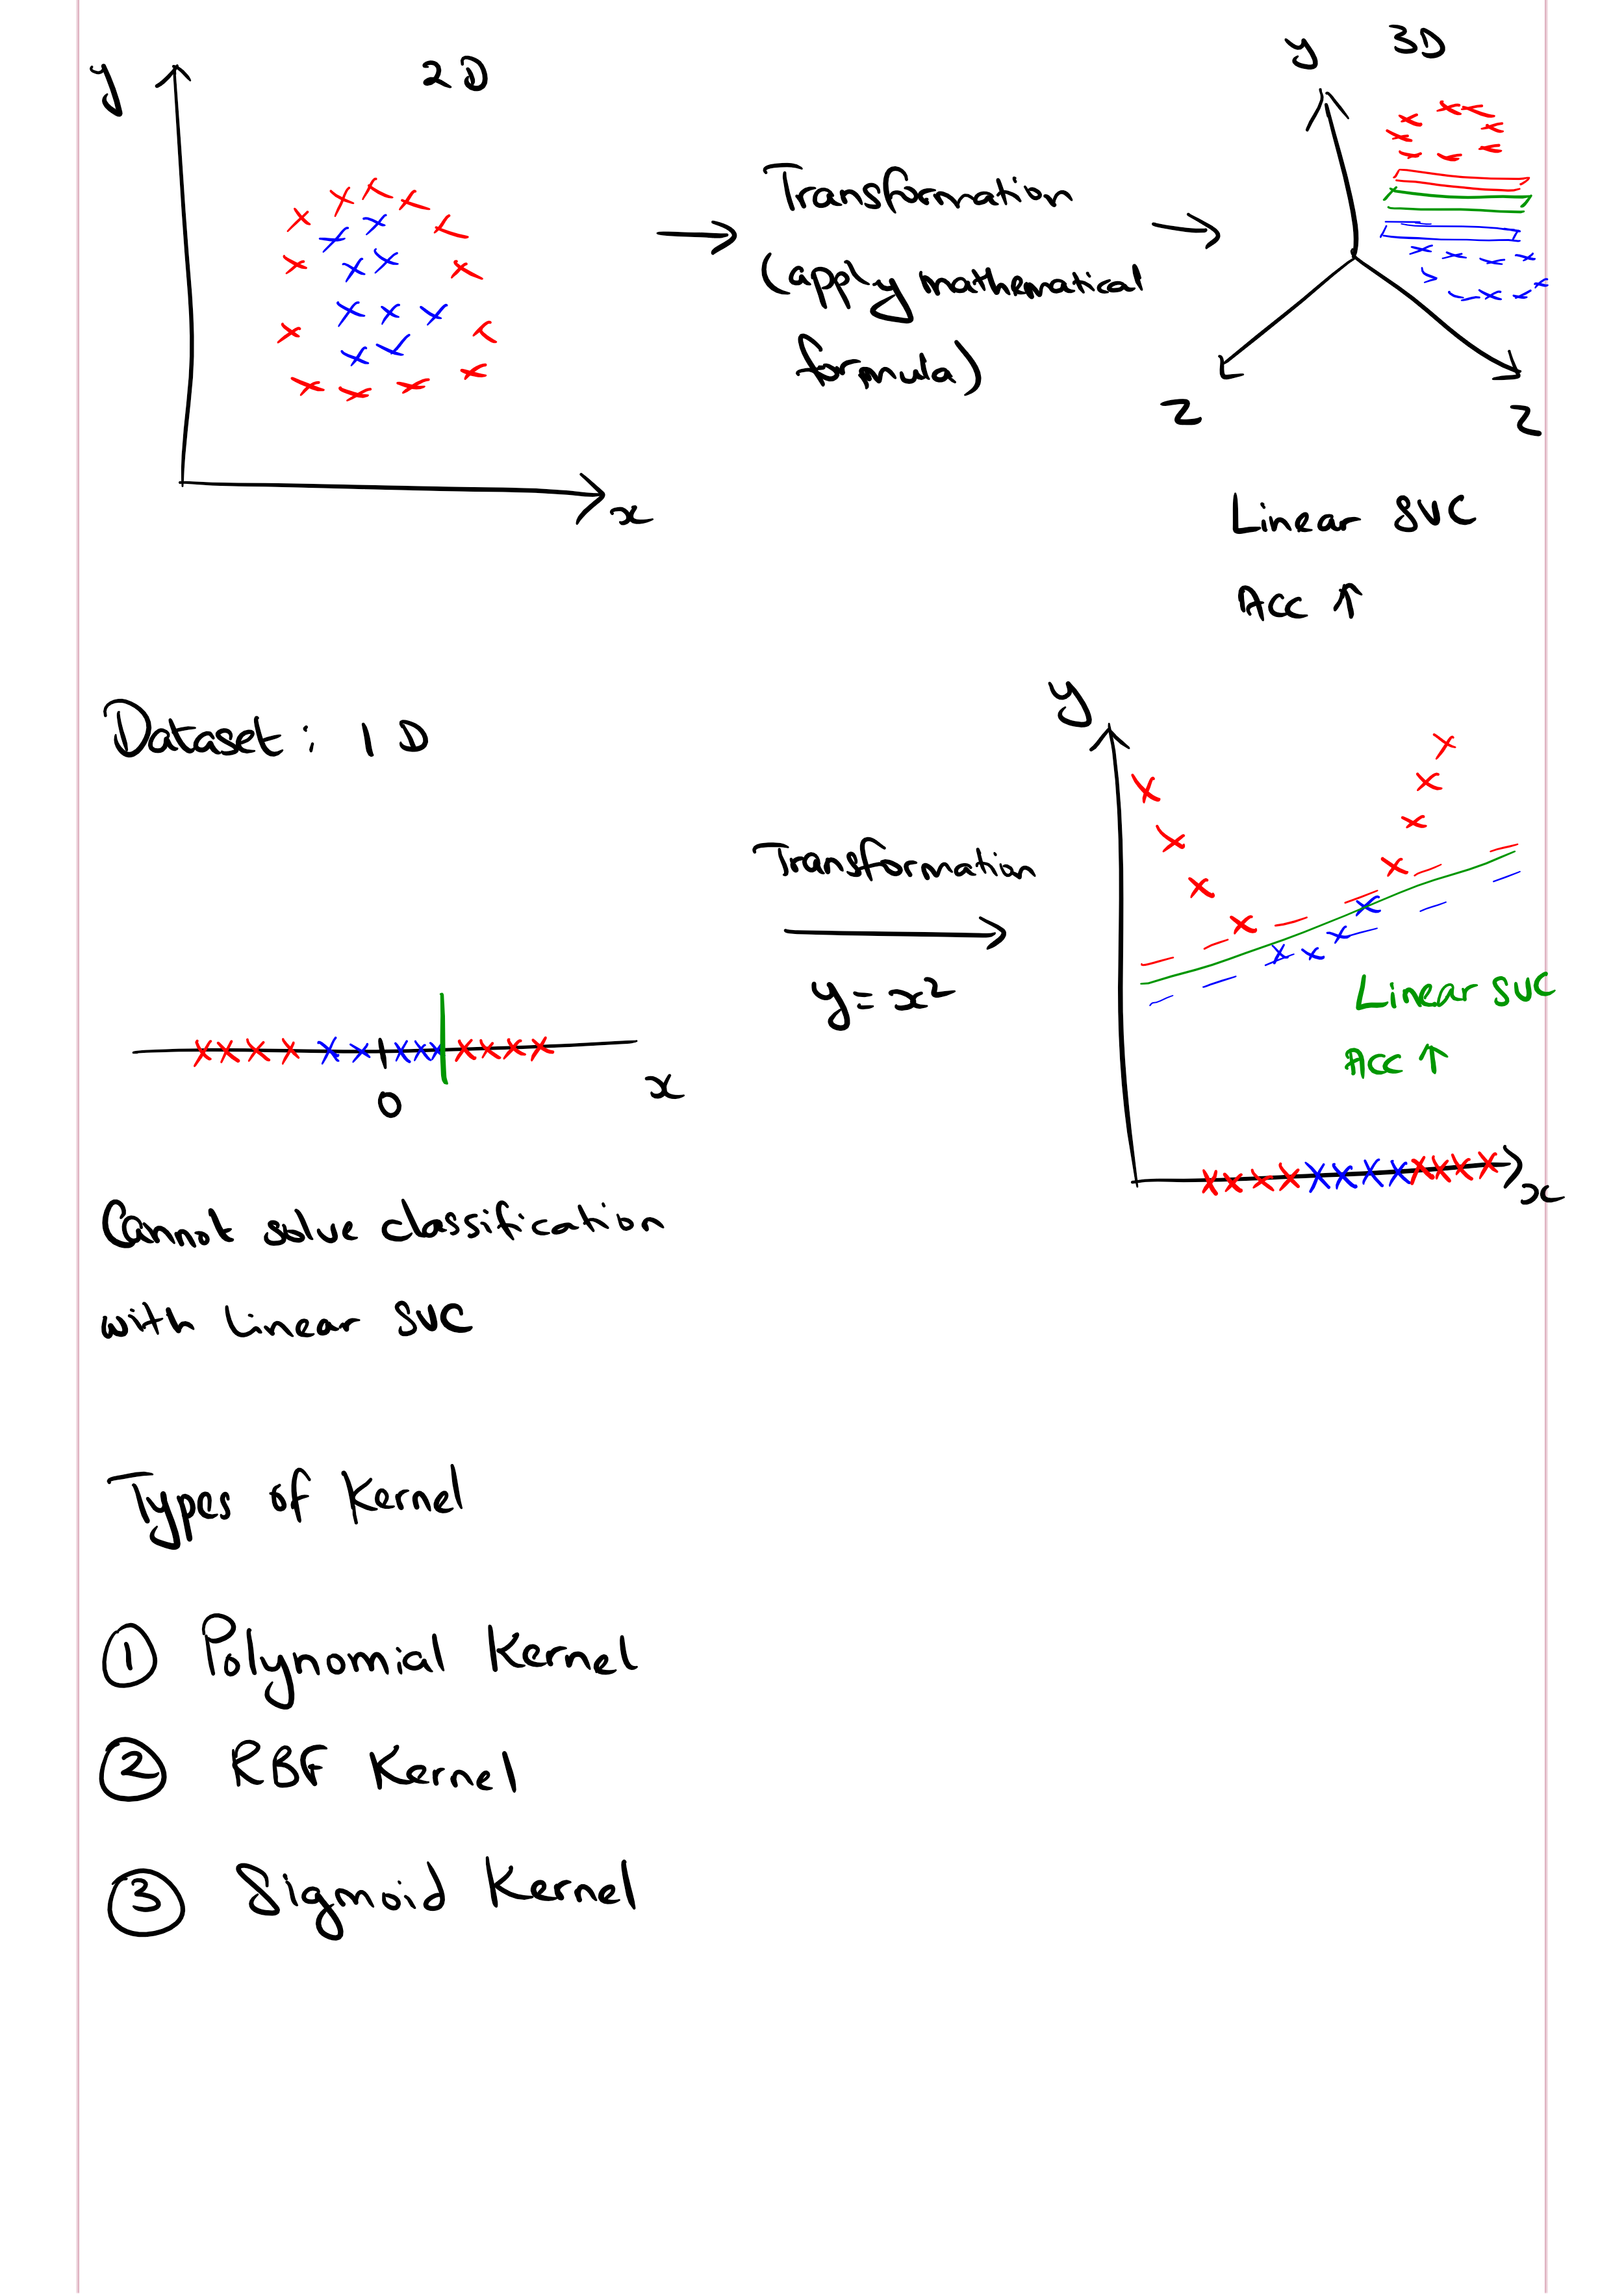 y
2D
y
3D
Transformation
(apply mathematical
formula)
z
z
x
Linear SVC
Acc ↑
Dataset: 1D
y
Transformation
y = x²
Linear SVC
Acc ↑
0
x
x
Cannot solve classification
with Linear SVC
Types of Kernel
① Polynomial Kernel
② RBF Kernel
③ Sigmoid Kernel